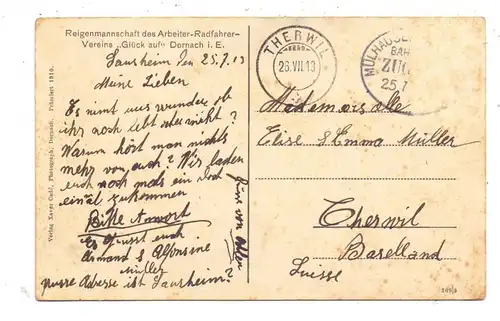 Reigenmannschaft des Arbeiter-Radfahrer-
Vereins „Glück auf“ Dornach i. E.
Sausheim den 25.7.13
Meine Lieben
Es nimt uns wunder ob
ihr noch lebt oder nicht?
Warum hört man nichts
mehr von euch? Wir laden
euch noch mals ein doch
einal zukommen
Bitte Anwort
Es grüsst euch
Armand & Alfonsine
Müller
Adresse ist Sausheim?
von
THERWIL
26.VII.13
MÜLHAUSEN
BAH
ZUG
25.7
Mademoiselle
Elise & Emma Müller
Therwil
Baselland
Suisse
Verlag Xaver Cadé, Photograph, Dornach. Prämiert 1910.